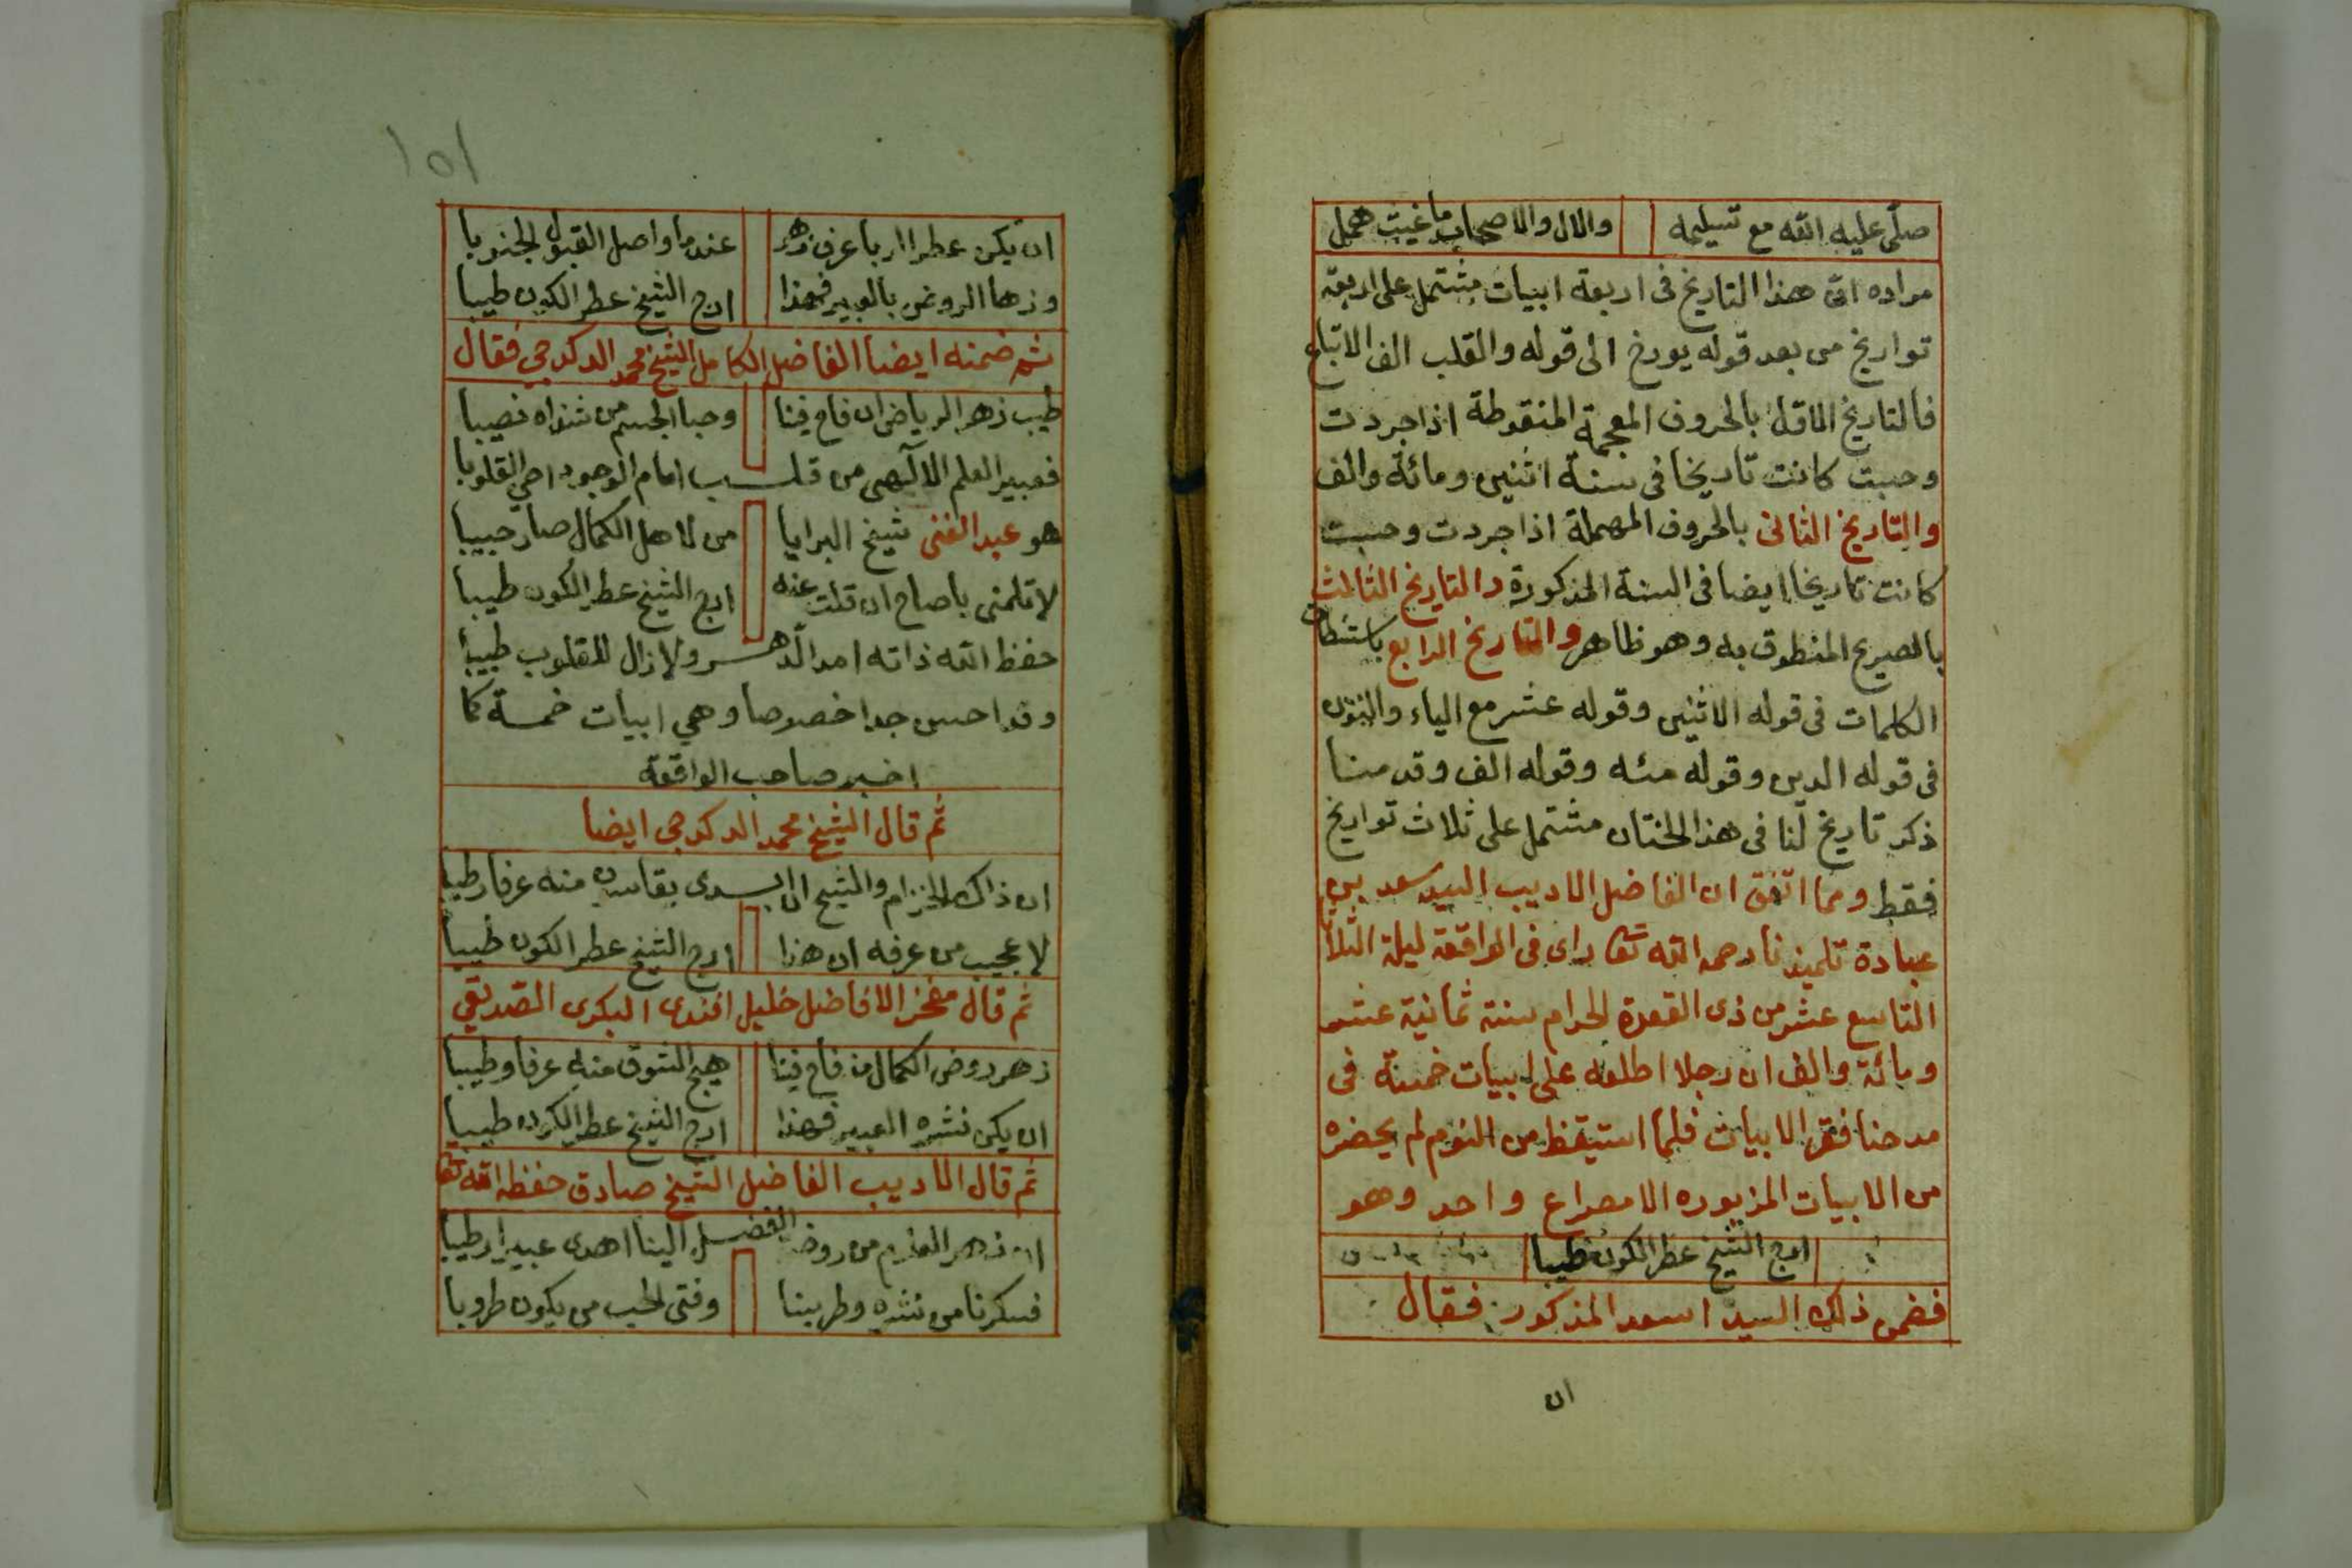 صلّى عليه الله مع تسليمه والال والاصحاب ما غيث همل
مراده انّ هذا التاريخ فى اربعة ابيات مشتمل على اربعة
تواريخ من بعد قوله يورخ الى قوله والقلب الف الاتباع
فالتاريخ الاول بالحروف المعجمة المنقوطة اذا جردت
وحسبت كانت تاريخا فى سنة اثنين ومائة والف
والتاريخ الثانى بالحروف المهملة اذا جردت وحسبت
كانت تاريخا ايضا فى السنة المذكورة والتاريخ الثالث
بالصريح المنطوق به وهو ظاهر والتاريخ الرابع باستنطاق
الكلمات فى قوله الاثنين وقوله عشر مع الياء والنون
فى قوله الدين وقوله مئه وقوله الف وقد منا
ذكر تاريخ لنا فى هذا الختان مشتمل على ثلاث تواريخ
فقط ومما اتفق ان الفاضل الاديب السيد سعد بن
عبادة تلميذنا رحمه الله تعا راى فى الواقعة ليلة الثلاثا
التاسع عشر من ذى القعدة الحرام سنة ثمانية عشر
ومائة والف ان رجلا اطلعه على ابيات خمسة فى
مدحنا فقرا الابيات فلما استيقظ من النوم لم يحضره
من الابيات المزبوره الا مصراع واحد وهو
ارج الشيخ عطر الكون طيبا
فضمن ذلك السيد اسعد المذكور فقال
ان
١٥١
ان يكن عطر الربا عرف زهر عندما واصل القبول الجنوبا
وزها الروض بالعبير فهذا ارج الشيخ عطر الكون طيبا
ثم ضمنه ايضا الفاضل الكامل الشيخ محمد الدكدجي فقال
طيب زهر الرياض ان فاح فينا وحبا الجسم من شذاه نصيبا
فعبير العلم الالهى من قلب امام الوجود احي القلوبا
هو عبد الغنى شيخ البرايا من لاهل الكمال صار حبيبا
لا تلمنى ياصاح ان قلت عنه ارج الشيخ عطر الكون طيبا
حفظ الله ذاته امد الدهر ولا زال للقلوب طبيبا
وقد احسن جدا خصوصا وهي ابيات خمسة كما
اخبر صاحب الواقعة
ثم قال الشيخ محمد الدكدجي ايضا
ان ذاك الخزام والشيح ان ابدى بقاسون منه عرفا رطيبا
لا عجيب من عرفه ان هذا ارج الشيخ عطر الكون طيبا
ثم قال مفخر الافاضل خليل افندى البكرى الصديقي
زهر روض الكمال مذ فاح فينا هيج الشوق منه عرفا وطيبا
ان يكن نشره العبير فهذا ارج الشيخ عطر الكون طيبا
ثم قال الاديب الفاضل الشيخ صادق حفظه الله تعا
ان زهر العلوم من روض الفضل الينا اهدى عبيرا رطيبا
فسكرنا من نشره وطربنا وفتى الحب من يكون طروبا